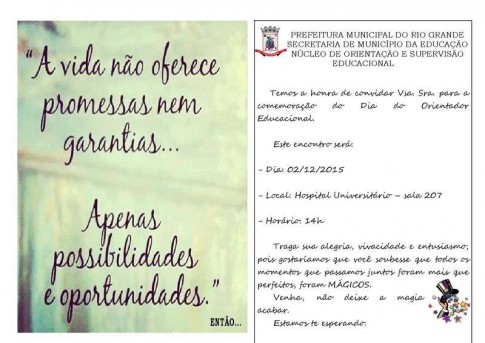 "A vida não oferece
promessas nem
garantias...
Apenas
possibilidades
e oportunidades."
ENTÃO...
PREFEITURA MUNICIPAL DO RIO GRANDE
SECRETARIA DE MUNICÍPIO DA EDUCAÇÃO
NÚCLEO DE ORIENTAÇÃO E SUPERVISÃO
EDUCACIONAL
Temos a honra de convidar Vsa. Sra. para a
comemoração do Dia do Orientador
Educacional.
Este encontro será:
- Dia: 02/12/2015
- Local: Hospital Universitário – sala 207
- Horário: 14h
Traga sua alegria, vivacidade e entusiasmo,
pois gostaríamos que você soubesse que todos os
momentos que passamos juntos foram mais que
perfeitos, foram MÁGICOS.
Venha, não deixe a magia
acabar.
Estamos te esperando.